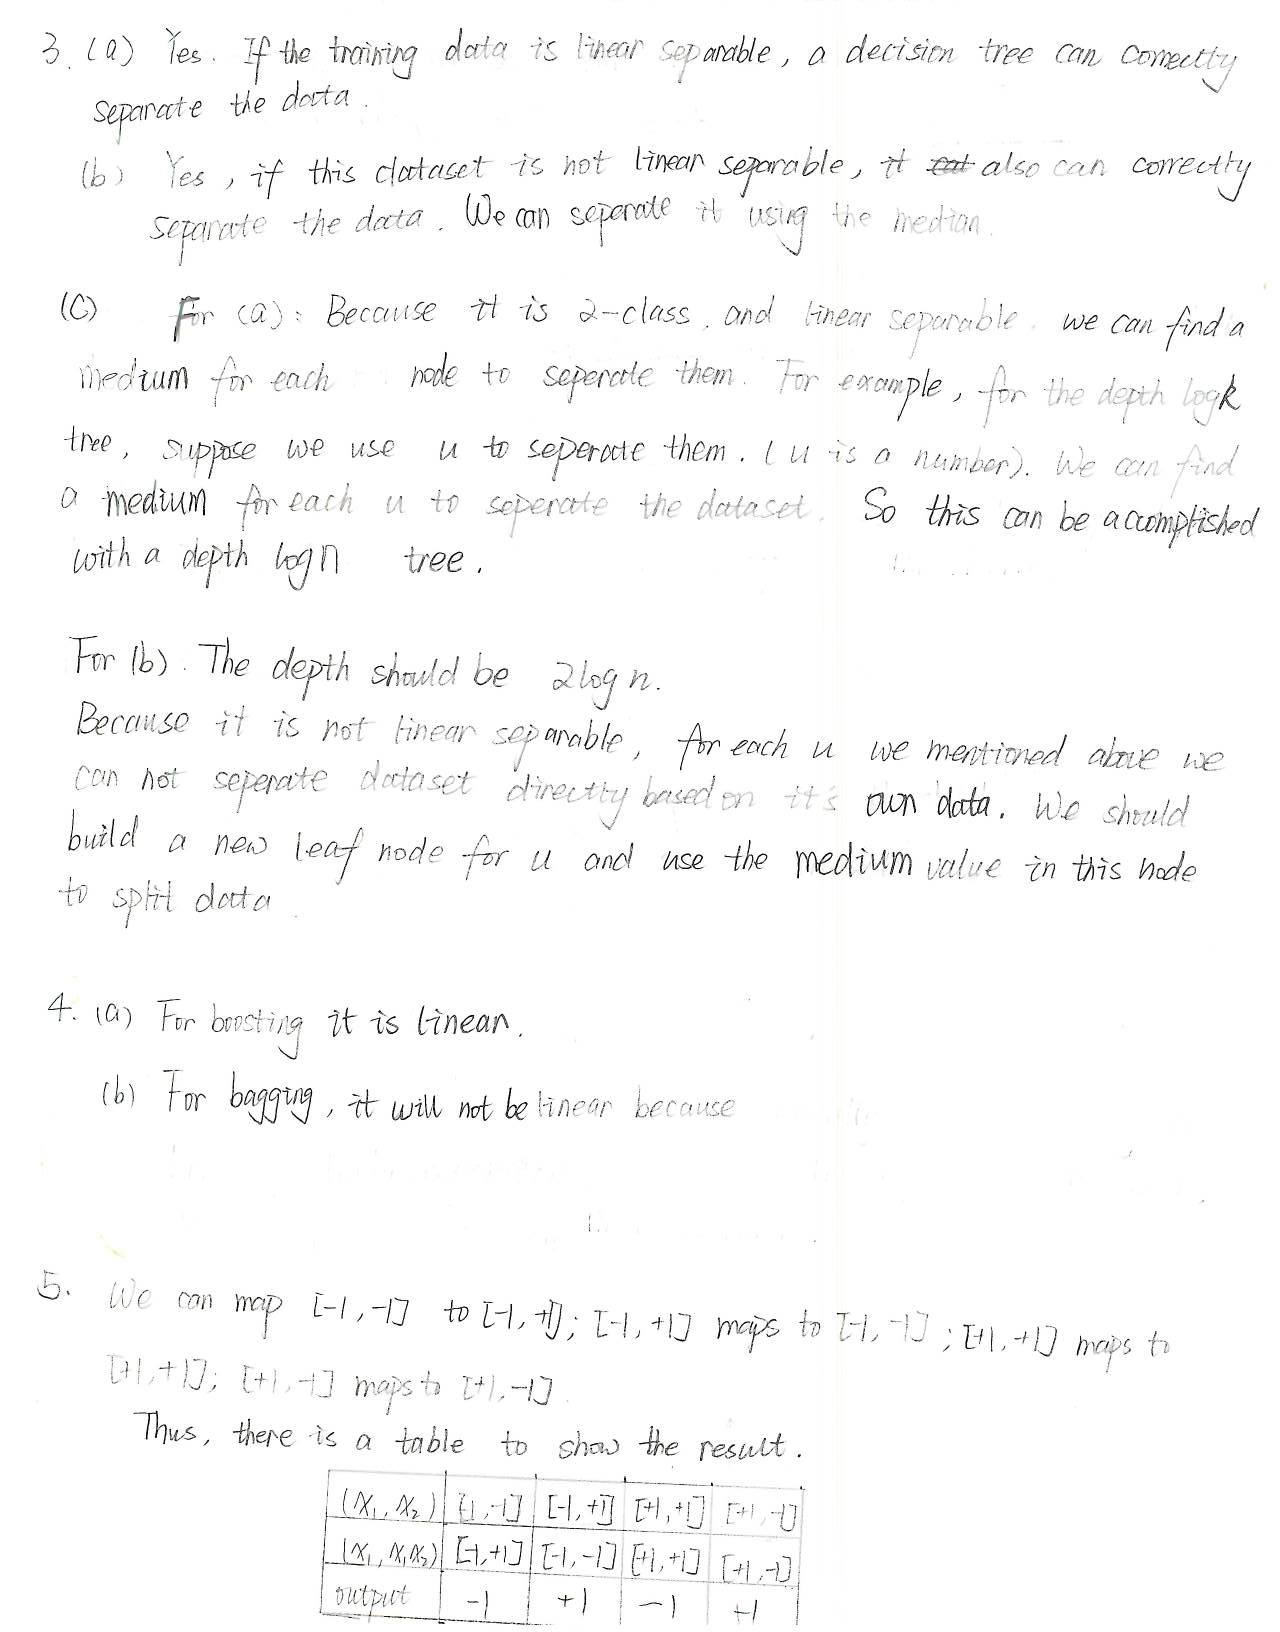 3. (a) Yes. If the training data is linear separable, a decision tree can correctly
separate the data.
(b) Yes, if this dataset is not linear separable, it also can correctly
separate the data. We can seperate it using the median.
(C) For (a): Because it is 2-class, and linear separable. we can find a
medium for each node to seperate them. For example, for the depth logk
tree, suppose we use u to seperate them. (u is a number). We can find
a medium for each u to seperate the dataset. So this can be accomplished
with a depth logn tree.
For (b). The depth should be 2logn.
Because it is not linear separable, for each u we mentioned above we
can not seperate dataset directly based on it's own data. We should
build a new leaf node for u and use the medium value in this node
to split data
4. (a) For boosting it is linear.
(b) For bagging, it will not be linear because
5. We can map [-1,-1] to [-1,+1]; [-1,+1] maps to [-1,-1]; [+1,+1] maps to
[+1,+1]; [+1,-1] maps to [+1,-1]
Thus, there is a table to show the result.
(x₁, x₂) [-1,-1] [-1,+1] [+1,+1] [+1,-1]
(x₁, x₁x₂) [-1,+1] [-1,-1] [+1,+1] [+1,-1]
output -1 +1 -1 +1